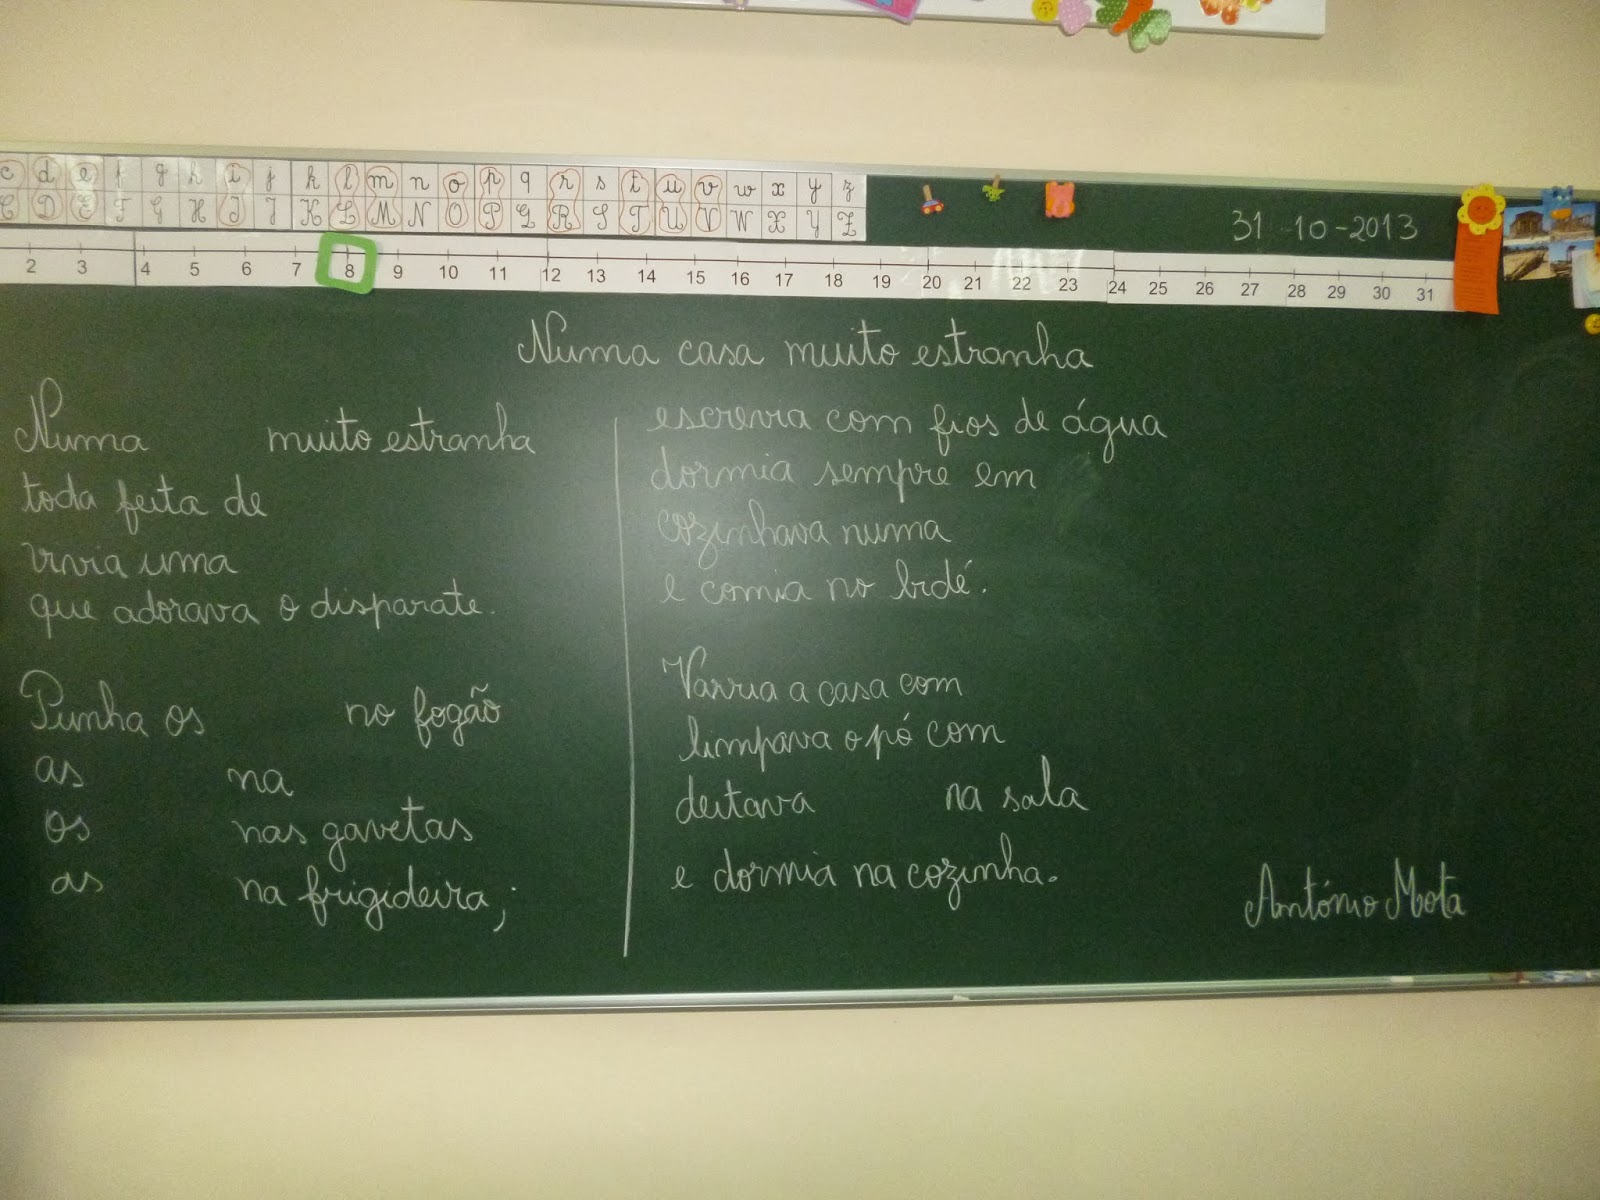 c d e f g h i j k l m n o p q r s t u v w x y z
C D E F G H I J K L M N O P Q R S T U V W X Y Z
31-10-2013
2 3 4 5 6 7 8 9 10 11 12 13 14 15 16 17 18 19 20 21 22 23 24 25 26 27 28 29 30 31
Numa casa muito estranha
Numa muito estranha
toda feita de
vivia uma
que adorava o disparate.
Punha os no fogão
as na
os nas gavetas
as na frigideira;
escrevia com fios de água
dormia sempre em
cozinhava numa
e comia no bidé.
Varria a casa com
limpava o pó com
deitava na sala
e dormia na cozinha.
António Mota